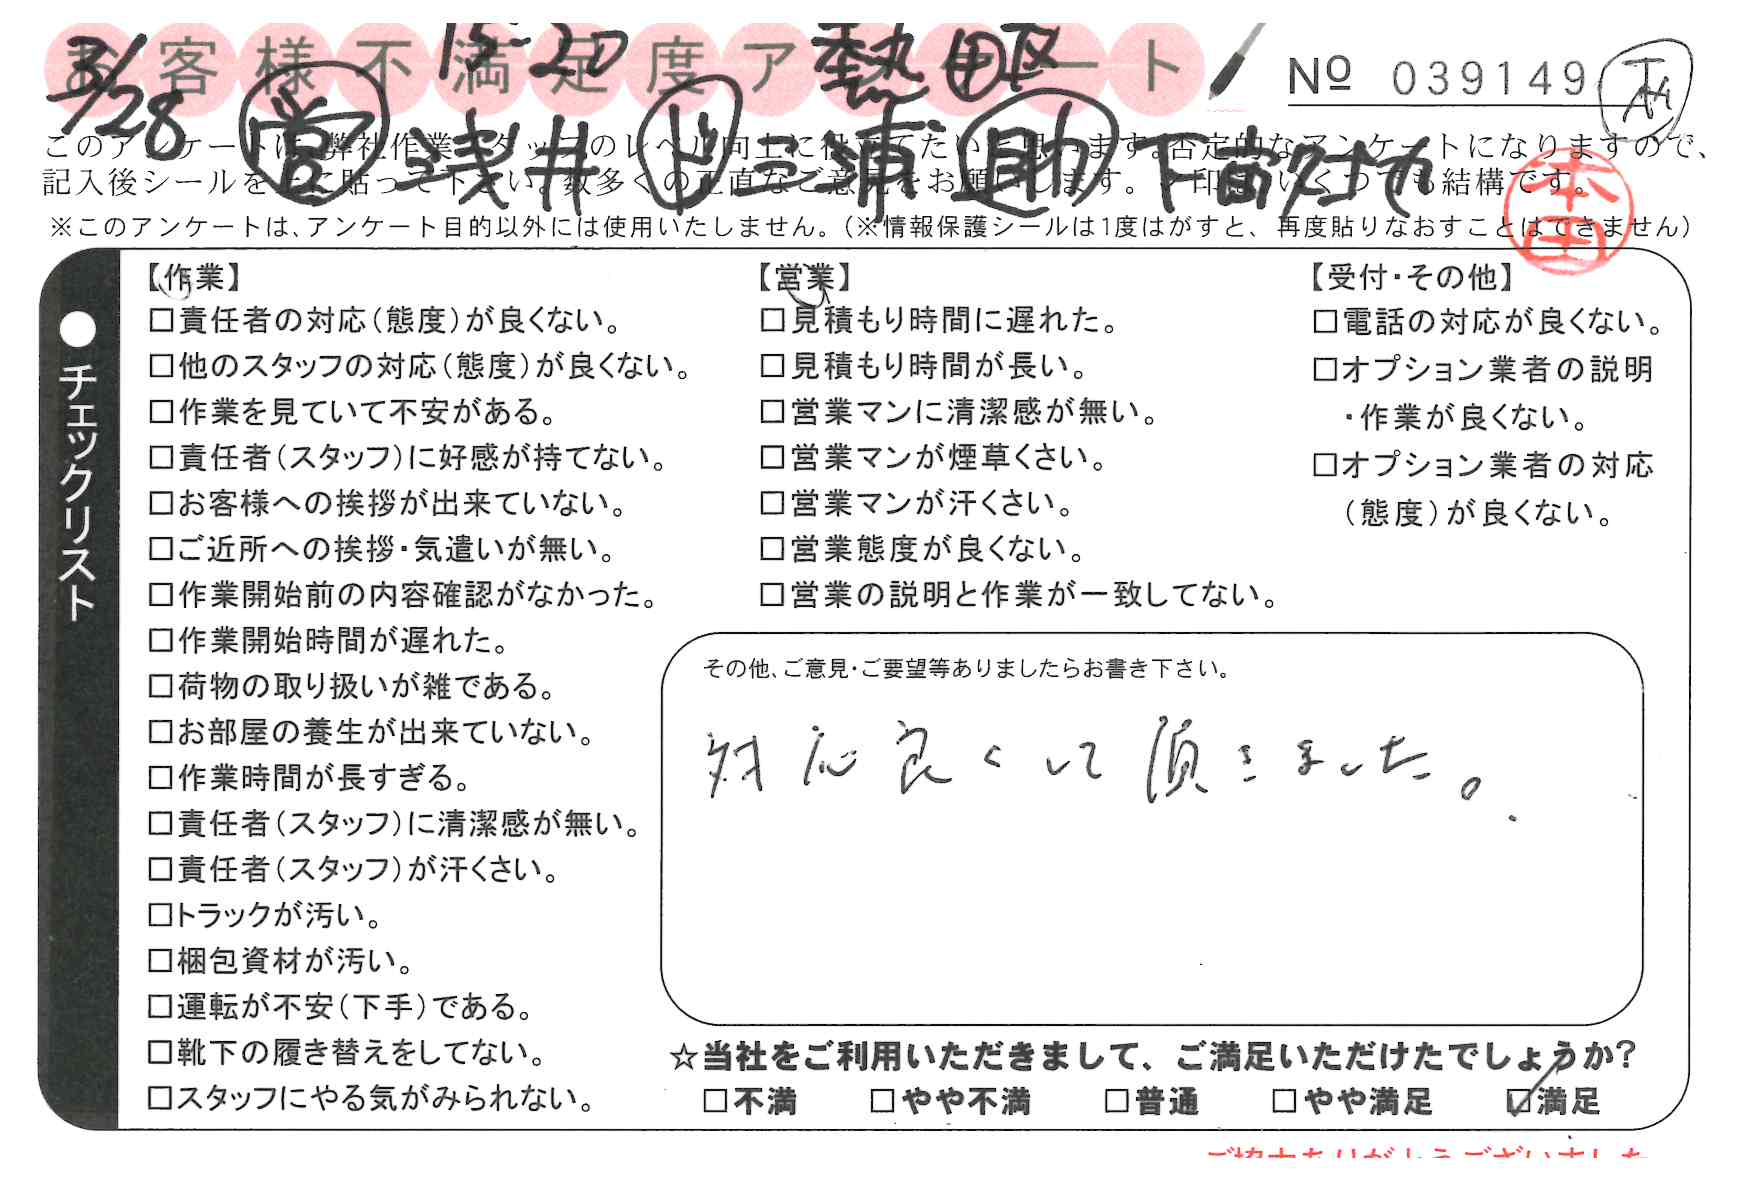 お客様不満足度アンケート
3/28 15-20 熱田区
№ 039149
営 浅井 ド 三浦 助 下
本田
このアンケートは、弊社作業スタッフのレベル向上に役立てたいと思います。否定的なアンケートになりますので、
記入後シールを上に貼って下さい。数多くの正直なご意見をお願いします。✓印は、いくつでも結構です。
※このアンケートは、アンケート目的以外には使用いたしません。(※情報保護シールは1度はがすと、再度貼りなおすことはできません)
●チェックリスト
【作業】
□責任者の対応(態度)が良くない。
□他のスタッフの対応(態度)が良くない。
□作業を見ていて不安がある。
□責任者(スタッフ)に好感が持てない。
□お客様への挨拶が出来ていない。
□ご近所への挨拶・気遣いが無い。
□作業開始前の内容確認がなかった。
□作業開始時間が遅れた。
□荷物の取り扱いが雑である。
□お部屋の養生が出来ていない。
□作業時間が長すぎる。
□責任者(スタッフ)に清潔感が無い。
□責任者(スタッフ)が汗くさい。
□トラックが汚い。
□梱包資材が汚い。
□運転が不安(下手)である。
□靴下の履き替えをしてない。
□スタッフにやる気がみられない。
【営業】
□見積もり時間に遅れた。
□見積もり時間が長い。
□営業マンに清潔感が無い。
□営業マンが煙草くさい。
□営業マンが汗くさい。
□営業態度が良くない。
□営業の説明と作業が一致してない。
【受付・その他】
□電話の対応が良くない。
□オプション業者の説明
・作業が良くない。
□オプション業者の対応
(態度)が良くない。
その他、ご意見・ご要望等ありましたらお書き下さい。
対応良くして頂きました。
☆当社をご利用いただきまして、ご満足いただけたでしょうか?
□不満 □やや不満 □普通 □やや満足 ☑満足
ご協力ありがとうございました